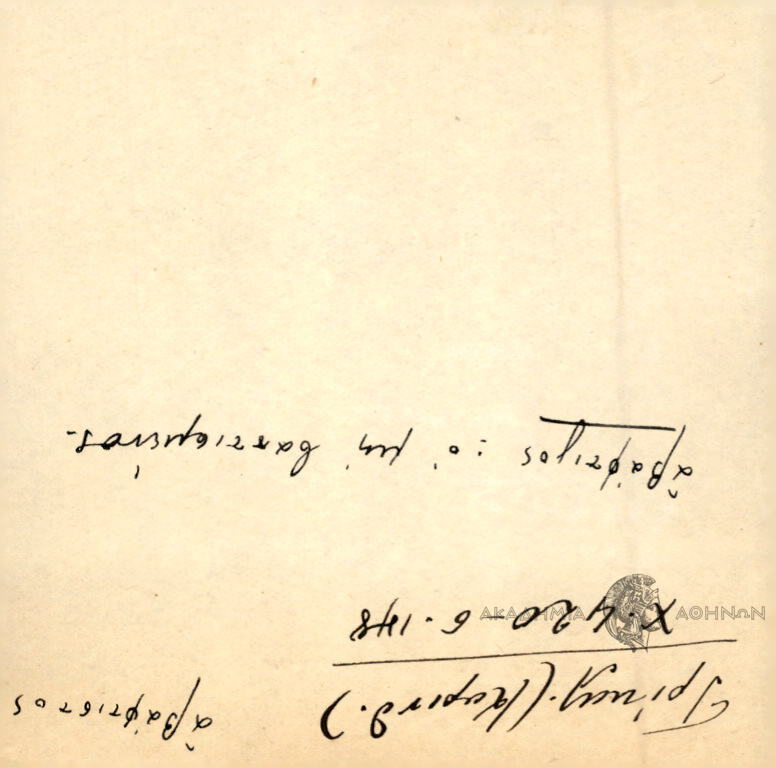 ἀβάφτιστος
Τρίκαλ. (Κορινθ.)
Χ. 420 - σ. 148
ἀβάφτιγος : ὁ μὴ βαπτισμένος.
ΑΚΑΔΗΜΙΑ ΑΘΗΝΩΝ